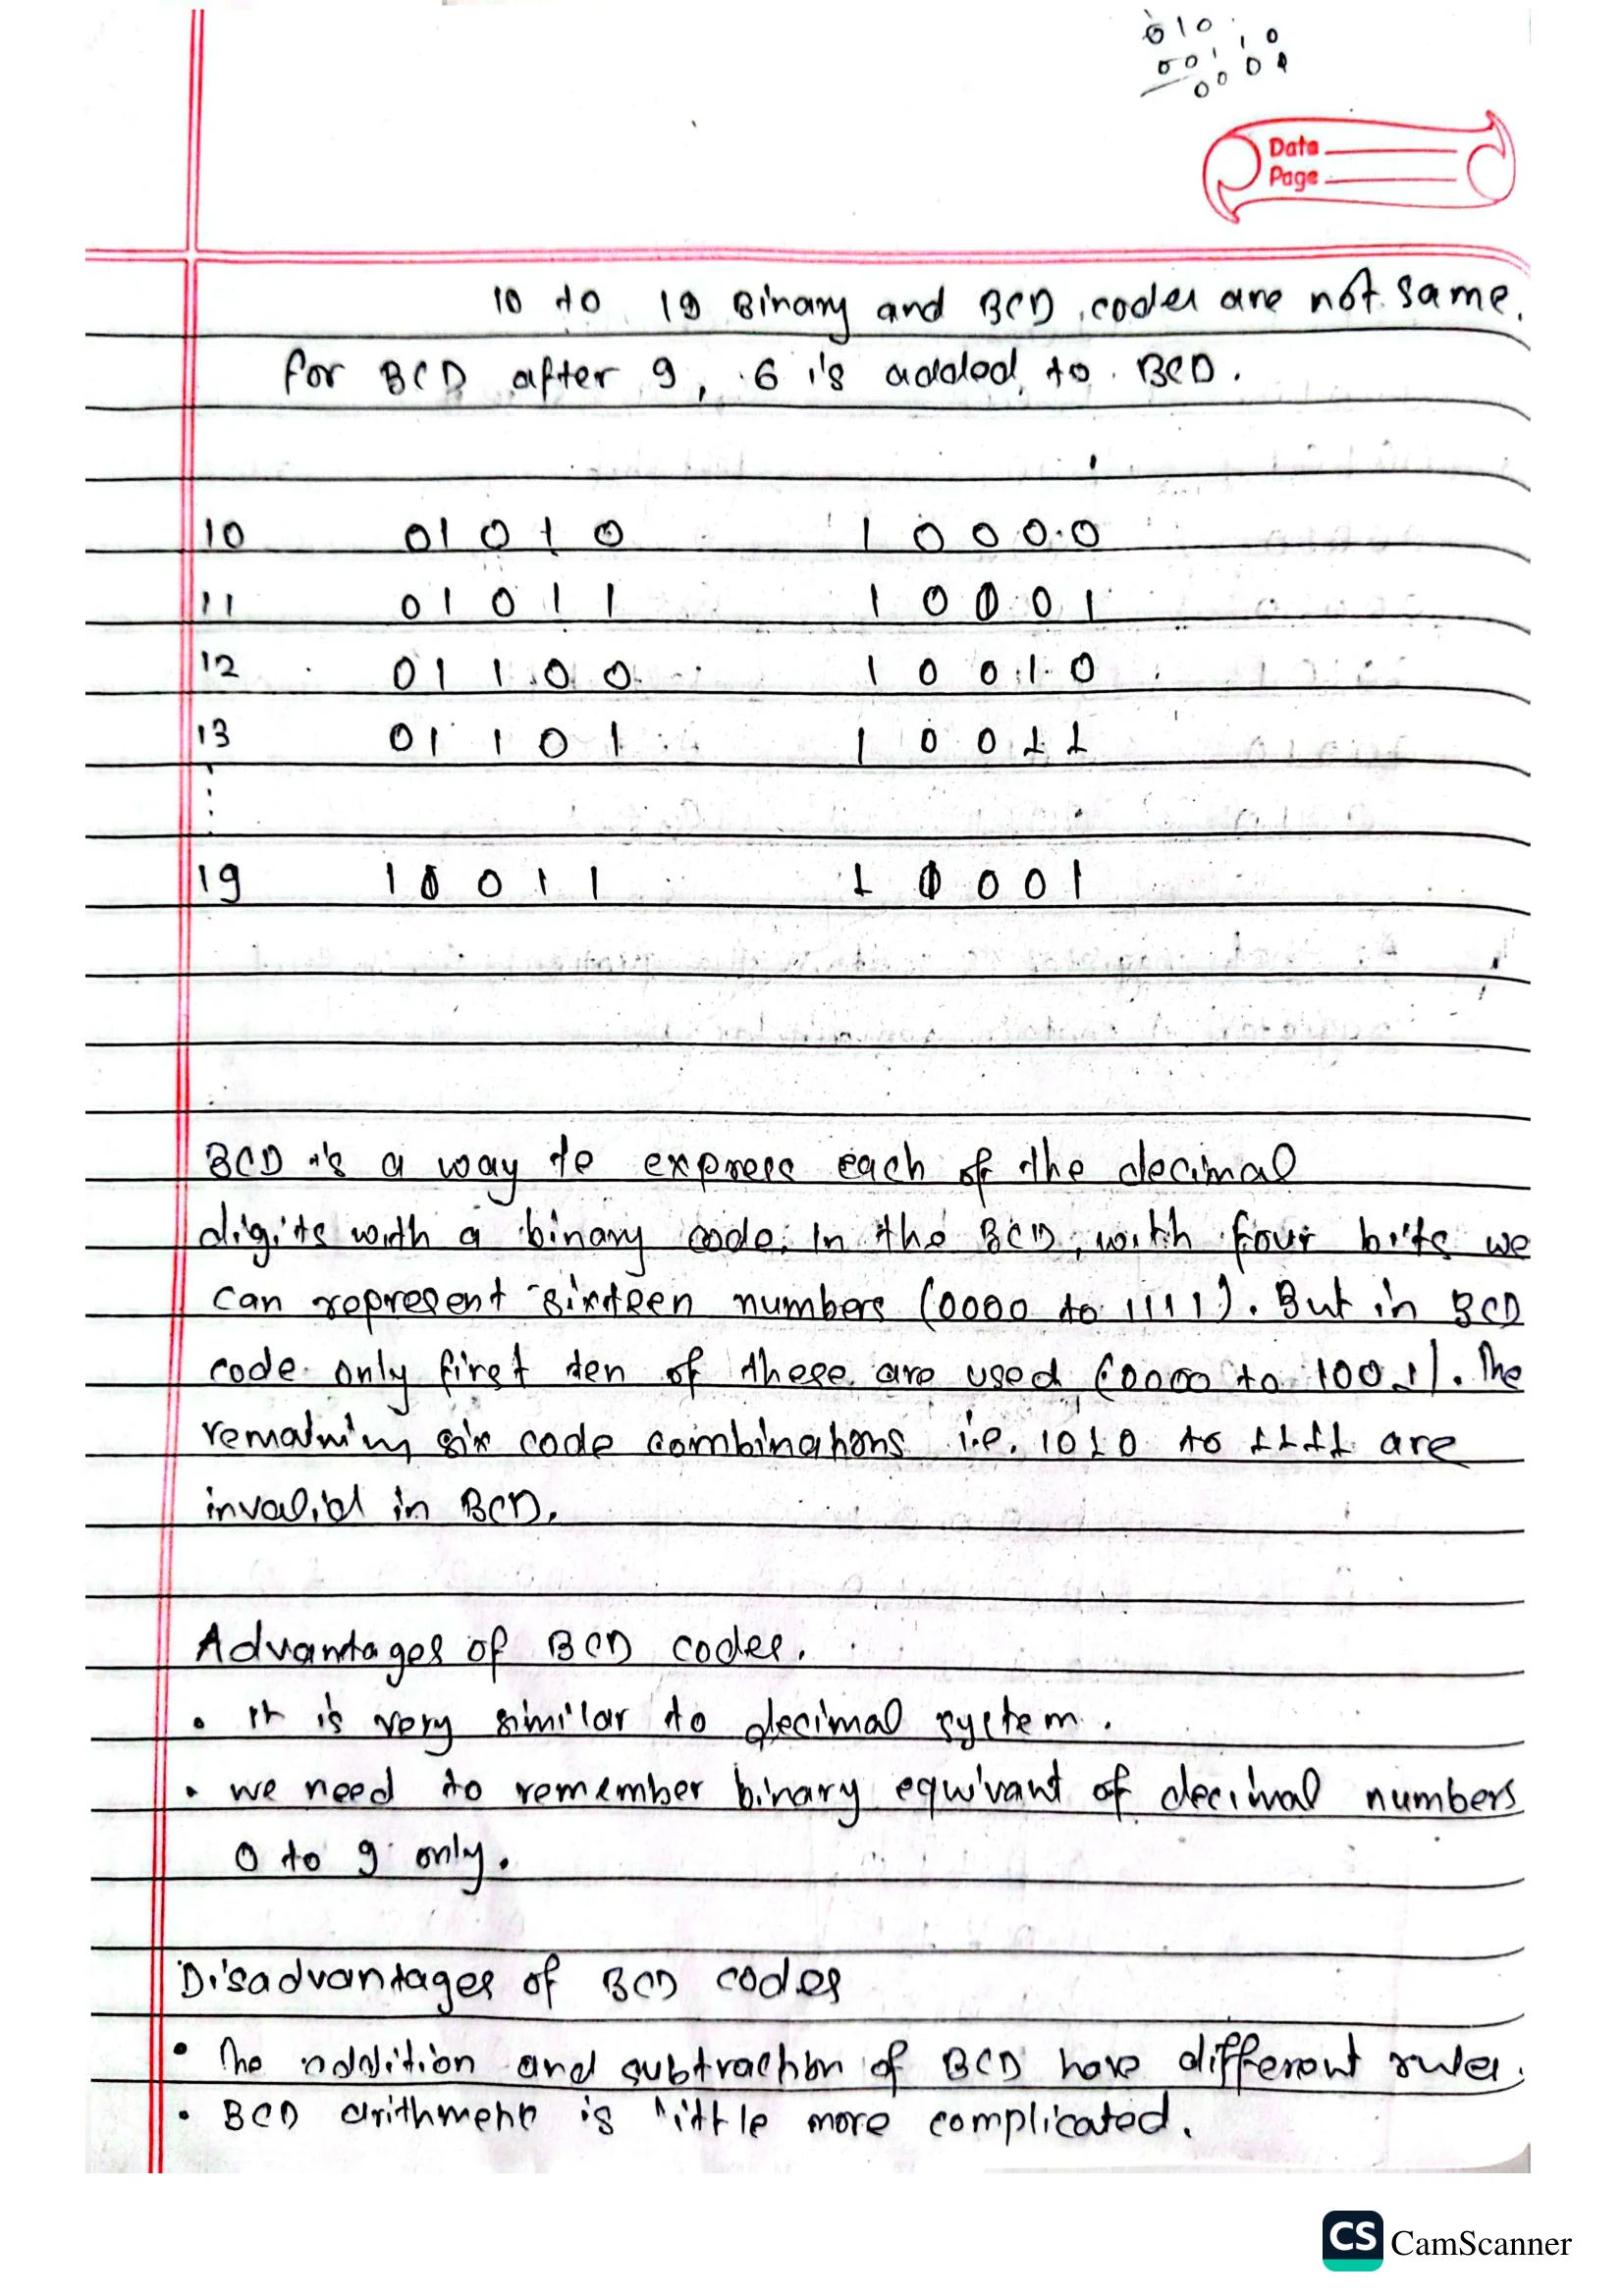 010 10
001 00
00
Date
Page
10 to 19 Binary and BCD codes are not same.
for BCD after 9, 6 is added to BCD.
10 01010 10000
11 01011 10001
12 01100 10010
13 01101 10011
19 10011 1 0001
BCD is a way to express each of the decimal
digits with a binary code. In the BCD, with four bits we
can represent sixteen numbers (0000 to 1111). But in BCD
code only first ten of these are used (0000 to 1001). The
remaining six code combinations i.e. 1010 to 1111 are
invalid in BCD.
Advantages of BCD codes.
• It is very similar to decimal system.
• we need to remember binary equivant of decimal numbers
0 to 9 only.
Disadvantages of BCD codes
• The addition and subtraction of BCD have different rules.
• BCD arithmetic is little more complicated.
CS CamScanner